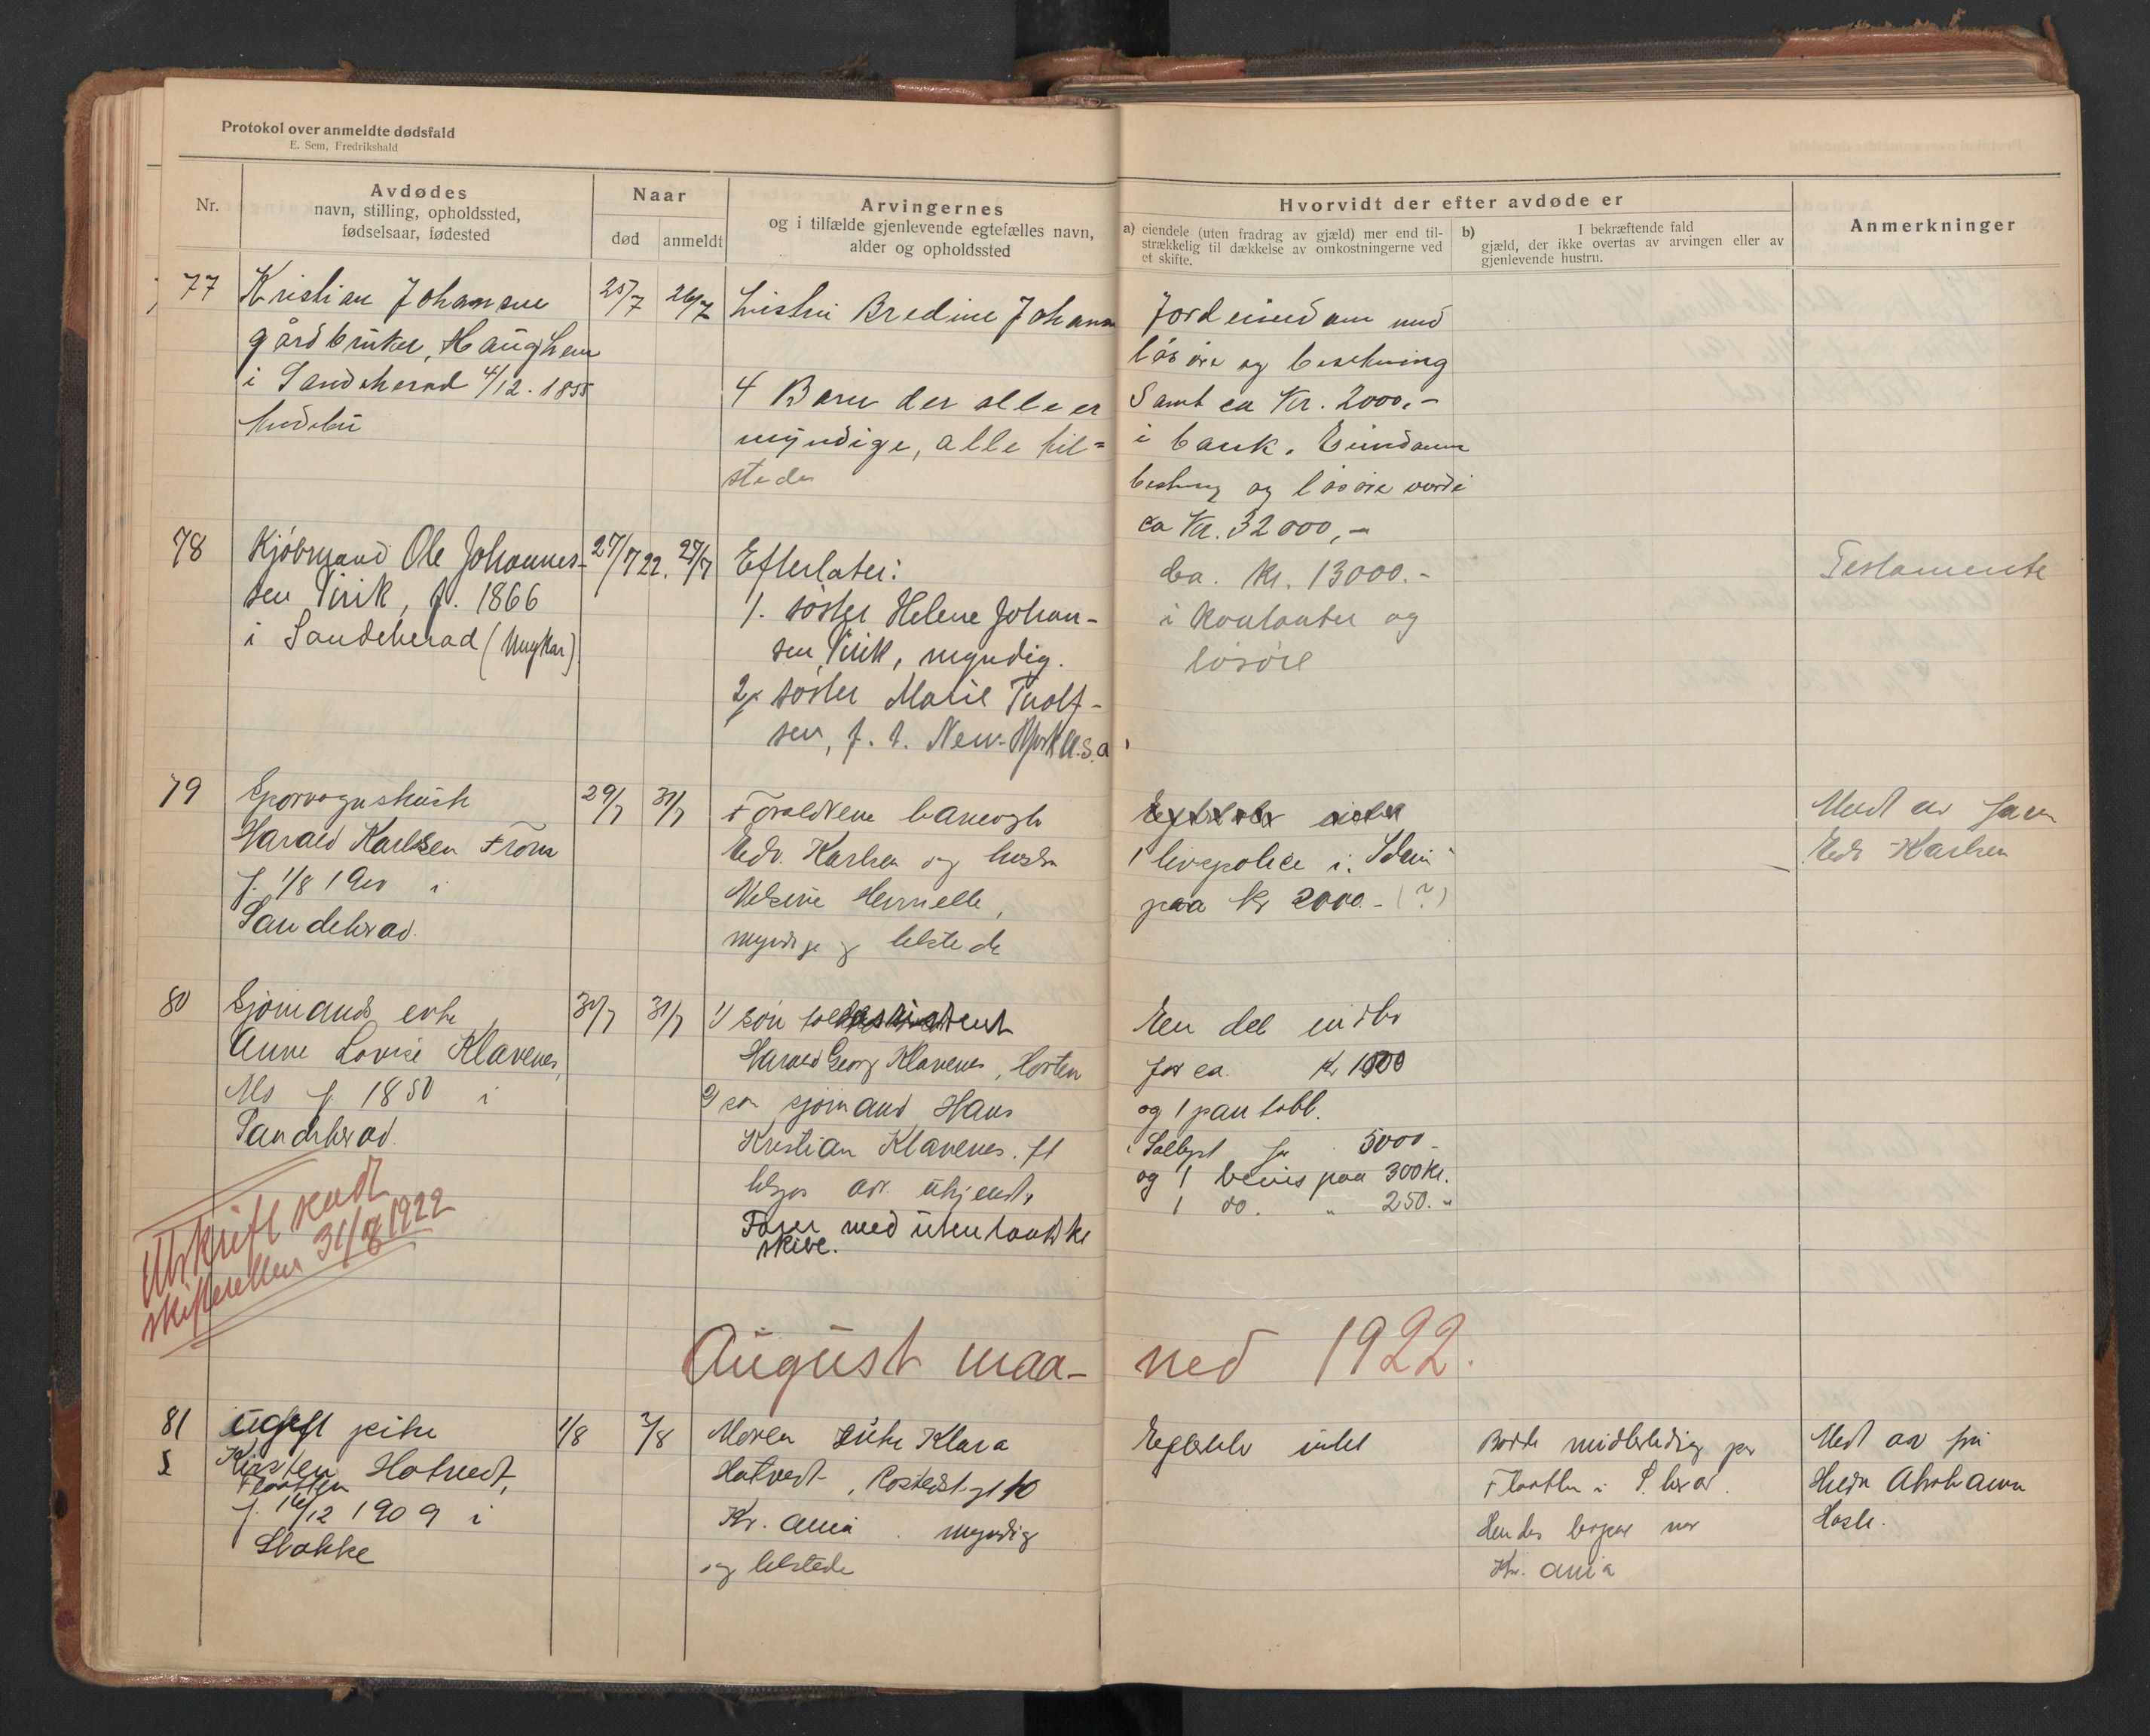 Protokol over anmeldte dødsfald
E. Sem, Fredrikshald
Nr.
Avdødes
navn, stilling, opholdssted,
fødselsaar, fødested
Naar
død
anmeldt
Arvingernes
og i tilfælde gjenlevende egtefælles navn,
alder og opholdssted
Hvorvidt der efter avdøde er
a) eiendele (uten fradrag av gjæld) mer end til-
strækkelig til dækkelse av omkostningerne ved
et skifte.
b) I bekræftende fald
gjæld, der ikke overtas av arvingen eller av
gjenlevende hustru.
Anmerkninger
77
Kristian Johansen
gårdbruker, Haughem
i Sandeherad 4/12. 1855
25/7
26/7
Bredine Johann
4 Barn der alle er
myndige, alle til=
stede
Jordeiendom med
løsøre og besetning
Samt ca Kr. 2000,-
i bank. Eiendom
og løsøre verdi
ca Kr. 32000,-
78
Kjøbmand Ole Johannes-
sen Virik, f. 1866
i Sandeherad (Ungkar)
27/7 22.
27/7
Efterlater:
1. søster Helene Johan-
sen Virik, myndig.
2. søster Marie Tholf-
sen, f. t. New-York U.S.a
ca. Kr. 13000.-
i kontanter og
løsøre
Testamente
79
Sporvognskusk
Harald Karlsen From
f. 1/8 1900 i
Sandeherad.
29/7
31/7
Forældrene
Edv. Karlsen og hustru
myndige og tilstede
1 livspolice i. Idun
paa Kr 2000.- (?)
Meldt av faren
Edv Karlsen
80
Sjømands enke
Anne Lovise Klavenes,
f 1850 i
Sandeherad.
30/7
31/7
1) søn
Harald Georg Klavenes, Horten
2) søn sjømand Hans
Kristian Klavenes. ft
ukjendt,
Farer med utenlandske
skibe.
En del indbo
for ca. Kr 1000
og 1 pantobl.
for 5000-
og 1 bevis paa 300 Kr.
1 do. " 250.-
Utskrift sendt
skifteretten 31/8 1922
August maa-
ned 1922.
81
ugift pike
Kirsten Hotvedt,
Flaatten
f. 16/12 1909 i
Stokke
1/8
2/8
Moren enke Klara
Hotvedt,
Kr. ania. myndig
og tilstede
Efterlater intet
Bodde midlertidig paa
Flaatten i S. herad.
Hendes bopæl var
Kr. ania
Meldt av fru
Hulda Abrahamsen